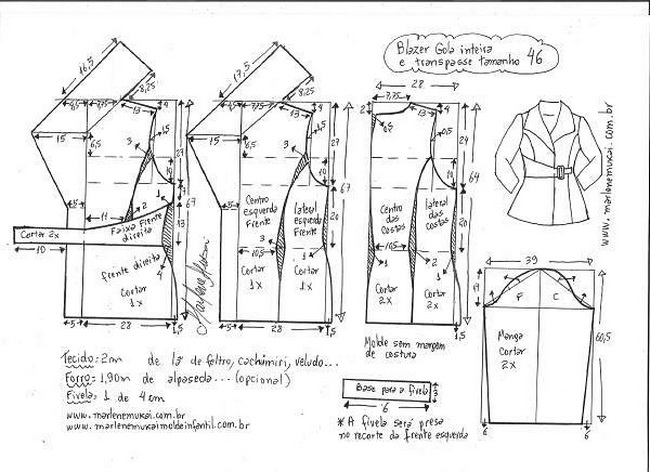 Blazer Gola inteira
e transpasse tamanho 46
16,5
8,25
6,5
7,75
13
4
15
1,5
3
6,5
10
27
67
11
2
1
13
Cortar 2x
Faixa Frente
direita
10
frente direita
4
Cortar
1x
5
28
1,5
17,5
8,25
6,5
7,75
13
4
15
1,5
3
6,5
10
27
67
20
Centro
esquerda
Frente
lateral
esquerda
Frente
3
10,5
1
Cortar
1x
Cortar
1x
5
28
1,5
28
7,75
2
13
4
0,5
24
10
64
20
Centro
das
Costas
lateral
das
Costas
10,5
1
2
Cortar
2x
Cortar
2x
1,5
Molde sem margem
de costura
www.marlenemukai.com.br
39
19
F
C
60,5
Manga
Cortar
2x
6
6
Base para a fivela
3
6
* A fivela será presa
no recorte da frente esquerda
Tecido: 2m de lã de feltro, cachimiri, veludo...
Forro: 1,90m de alpaseda... (opcional)
Fivela: 1 de 4cm
www.marlenemukai.com.br
www.marlenemukaimoldeinfantil.com.br
Marlene Mukai